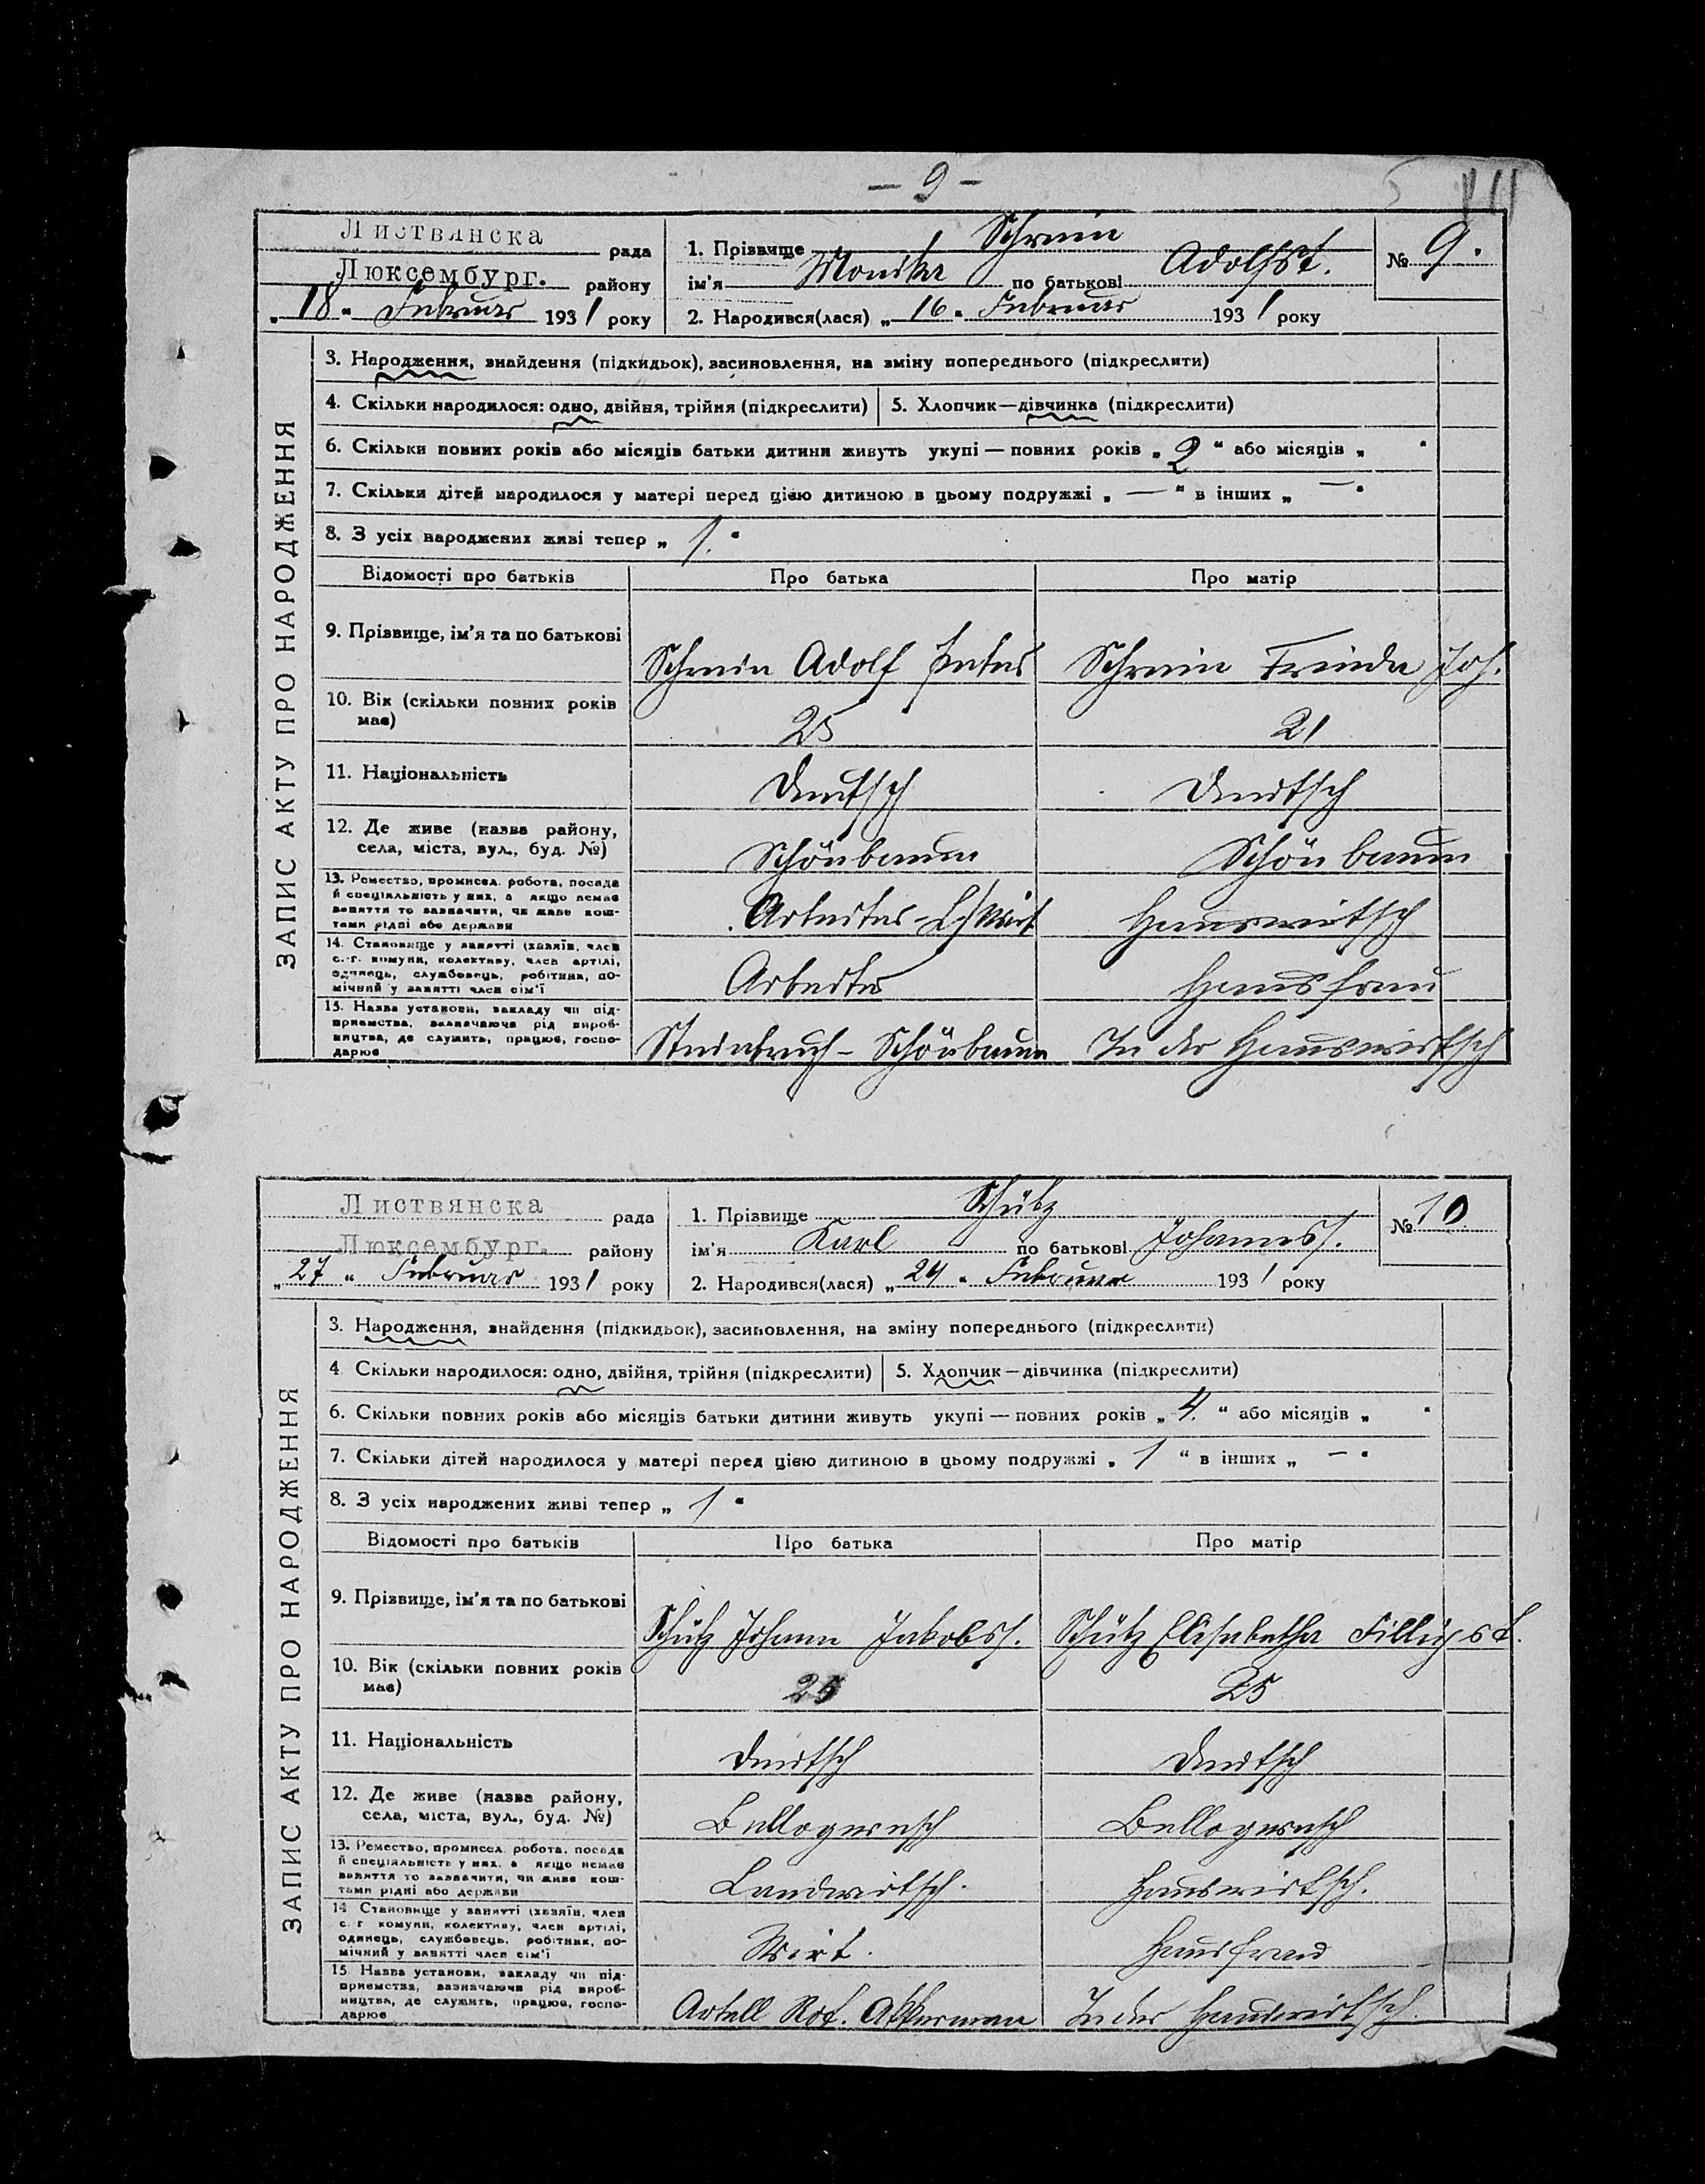 — 9 —
Листвянска рада
Люксембург. району
„18“ Februar 1931 року
1. Прізвище Schrein
ім'я Monika по батькові Adolfst.
2. Народився(лася) „16“ Februar 1931 року
№ 9.
ЗАПИС АКТУ ПРО НАРОДЖЕННЯ
3. Народження, знайдення (підкидьок), засиновлення, на зміну попереднього (підкреслити)
4. Скільки народилося: одно, двійня, трійня (підкреслити) 5. Хлопчик—дівчинка (підкреслити)
6. Скільки повних років або місяців батьки дитини живуть укупі — повних років „2“ або місяців „ “
7. Скільки дітей народилося у матері перед цією дитиною в цьому подружжі „—“ в інших „—“
8. З усіх народжених живі тепер „1.“
Відомості про батьків Про батька Про матір
9. Прізвище, ім'я та по батькові Schrein Adolf Peters Schrein Frieda Joh.
10. Вік (скільки повних років має) 25 21
11. Національність Deutsch Deutsch
12. Де живе (назва району, села, міста, вул., буд. №) Schönbaum Schönbaum
13. Ремество, промисел, робота, посада й спеціяльність у них, а якщо немає заняття то зазначити, чи живе коштами рідні або держави Arbeiter- Hauswirtsch
14. Становище у занятті (хазяїн, член с.-г. комуни, колективу, член артілі, одинець, службовець, робітник, помічний у занятті член сім'ї Arbeiter Hausfrau
15. Назва установи, закладу чи підприємства, зазначаючи рід виробництва, де служить, працює, господарює Steinbruch - Schönbaum In der Hauswirtsch
Листвянска рада
Люксембург. району
„27“ Februar 1931 року
1. Прізвище Schütz
ім'я Karl по батькові Johanness.
2. Народився(лася) „24“ Februar 1931 року
№ 10
ЗАПИС АКТУ ПРО НАРОДЖЕННЯ
3. Народження, знайдення (підкидьок), засиновлення, на зміну попереднього (підкреслити)
4 Скільки народилося: одно, двійня, трійня (підкреслити) 5. Хлопчик—дівчинка (підкреслити)
6. Скільки повних років або місяців батьки дитини живуть укупі — повних років „4.“ або місяців „ “
7. Скільки дітей народилося у матері перед цією дитиною в цьому подружжі „1“ в інших „—“
8. З усіх народжених живі тепер „1“
Відомості про батьків Про батька Про матір
9. Прізвище, ім'я та по батькові Schütz Johann Jakobss. Schütz Elisabetha Fillips t.
10. Вік (скільки повних років має) 25 25
11. Національність Deutsch Deutsch
12. Де живе (назва району, села, міста, вул., буд. №) Bellogwesch Bellogwesch
13. Ремество, промисел, робота, посада й спеціяльність у них, а якщо немає заняття то зазначити, чи живе коштами рідні або держави Landwirtsch. Hauswirtsch.
14 Становище у занятті (хазяїн, член с.-г. комуни, колективу, член артілі, одинець, службовець, робітник, помічний у занятті член сім'ї Wirt. Hausfrau
15. Назва установи, закладу чи підприємства, зазначаючи рід виробництва, де служить, працює, господарює Artell Rot. Akkerman In der Hauswirtsch.